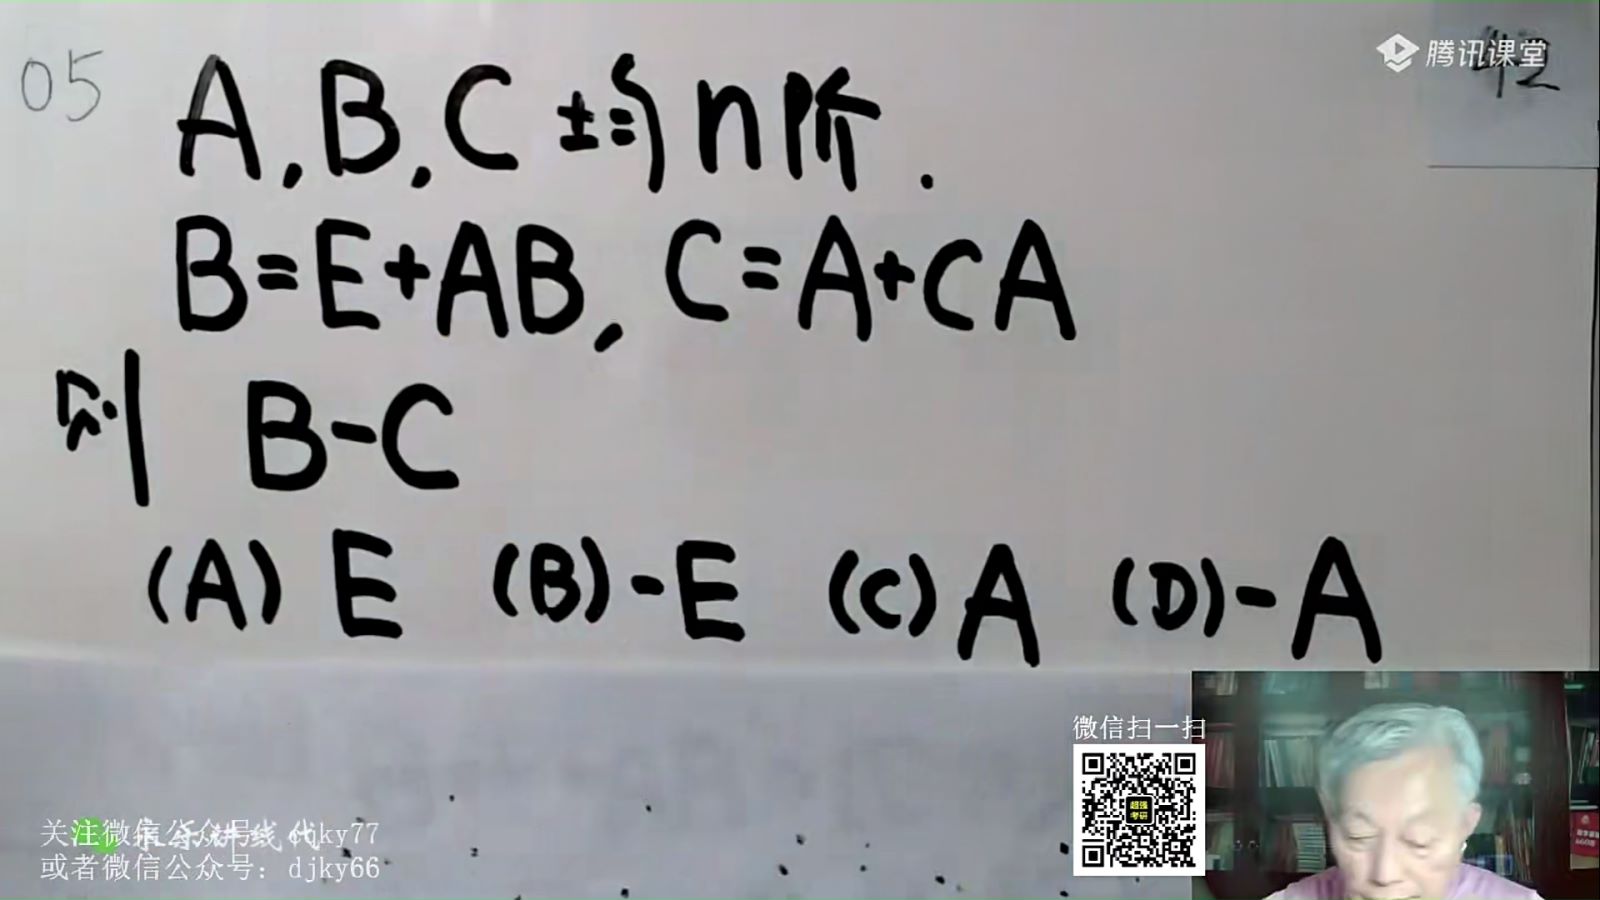 05
腾讯课堂
42
A,B,C均n阶.
B=E+AB, C=A+CA
则 B-C
(A) E (B) -E (C) A (D) -A
微信扫一扫
超强
考研
关注微信公众号: djky77
或者微信公众号: djky66